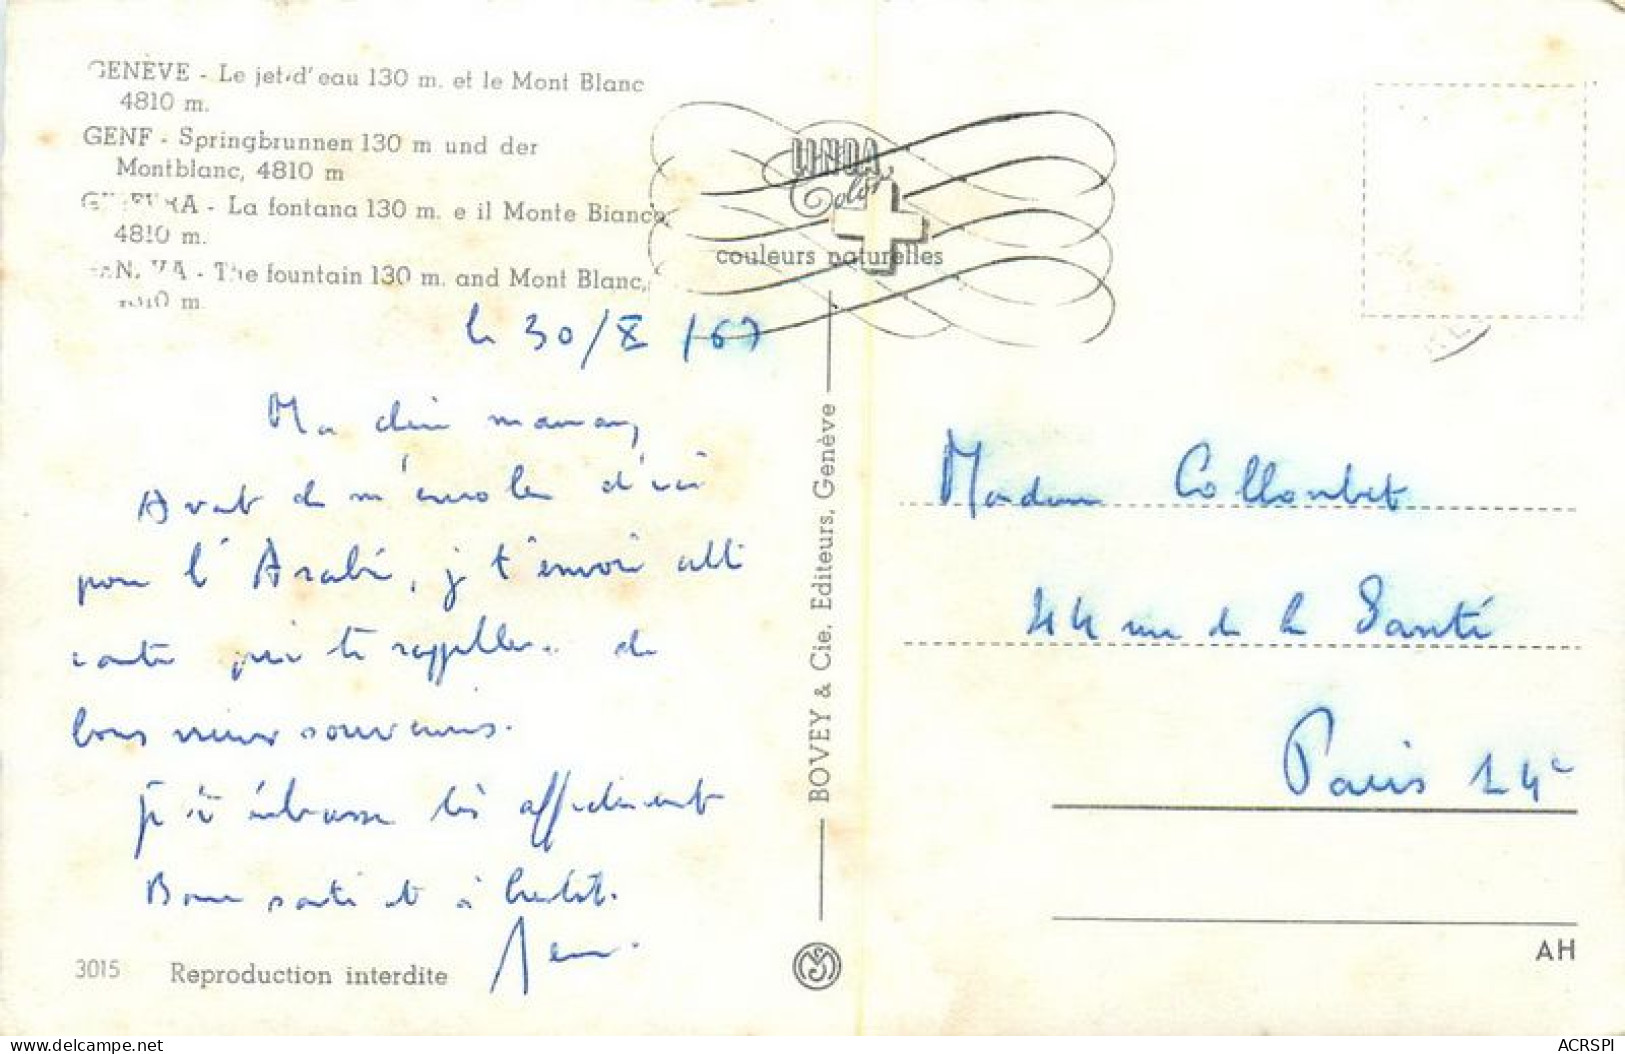 GENÈVE - Le jet d'eau 130 m. et le Mont Blanc
4810 m.
GENF - Springbrunnen 130 m und der
Montblanc, 4810 m
GINEVRA - La fontana 130 m. e il Monte Bianco,
4810 m.
GENEVA - The fountain 130 m. and Mont Blanc,
4810 m.
LINDA
Color
couleurs naturelles
le 30/X/67
Ma chère maman,
Avant de m'envoler d'ici
pour l'Arabie, je t'envoie cette
carte pour te rappeler de
bons vieux souvenirs.
Je t'embrasse très affectueusement
Bonne santé et à bientôt.
BOVEY & Cie, Editeurs, Genève
Madame Collombet
44 rue de la Santé
Paris 14e
3015
Reproduction interdite
AH
ACRSPI